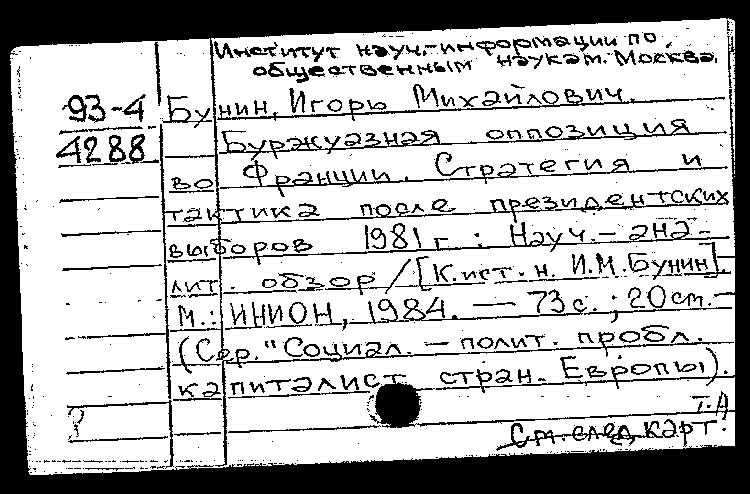 Институт науч. информации по
общественным наукам. Москва.
93-4 Бунин, Игорь Михайлович.
4288 Буржуазная оппозиция
во Франции. Стратегия и
тактика после президентских
выборов 1981 г : Науч. - ана-
лит. обзор / [К.ист.н. И.М.Бунин].
М.: ИНИОН, 1984. — 73 с. ; 20 см. —
(Сер. "Социал. - полит. пробл.
капиталист. стран. Европы).
Т.А
См. след. карт.